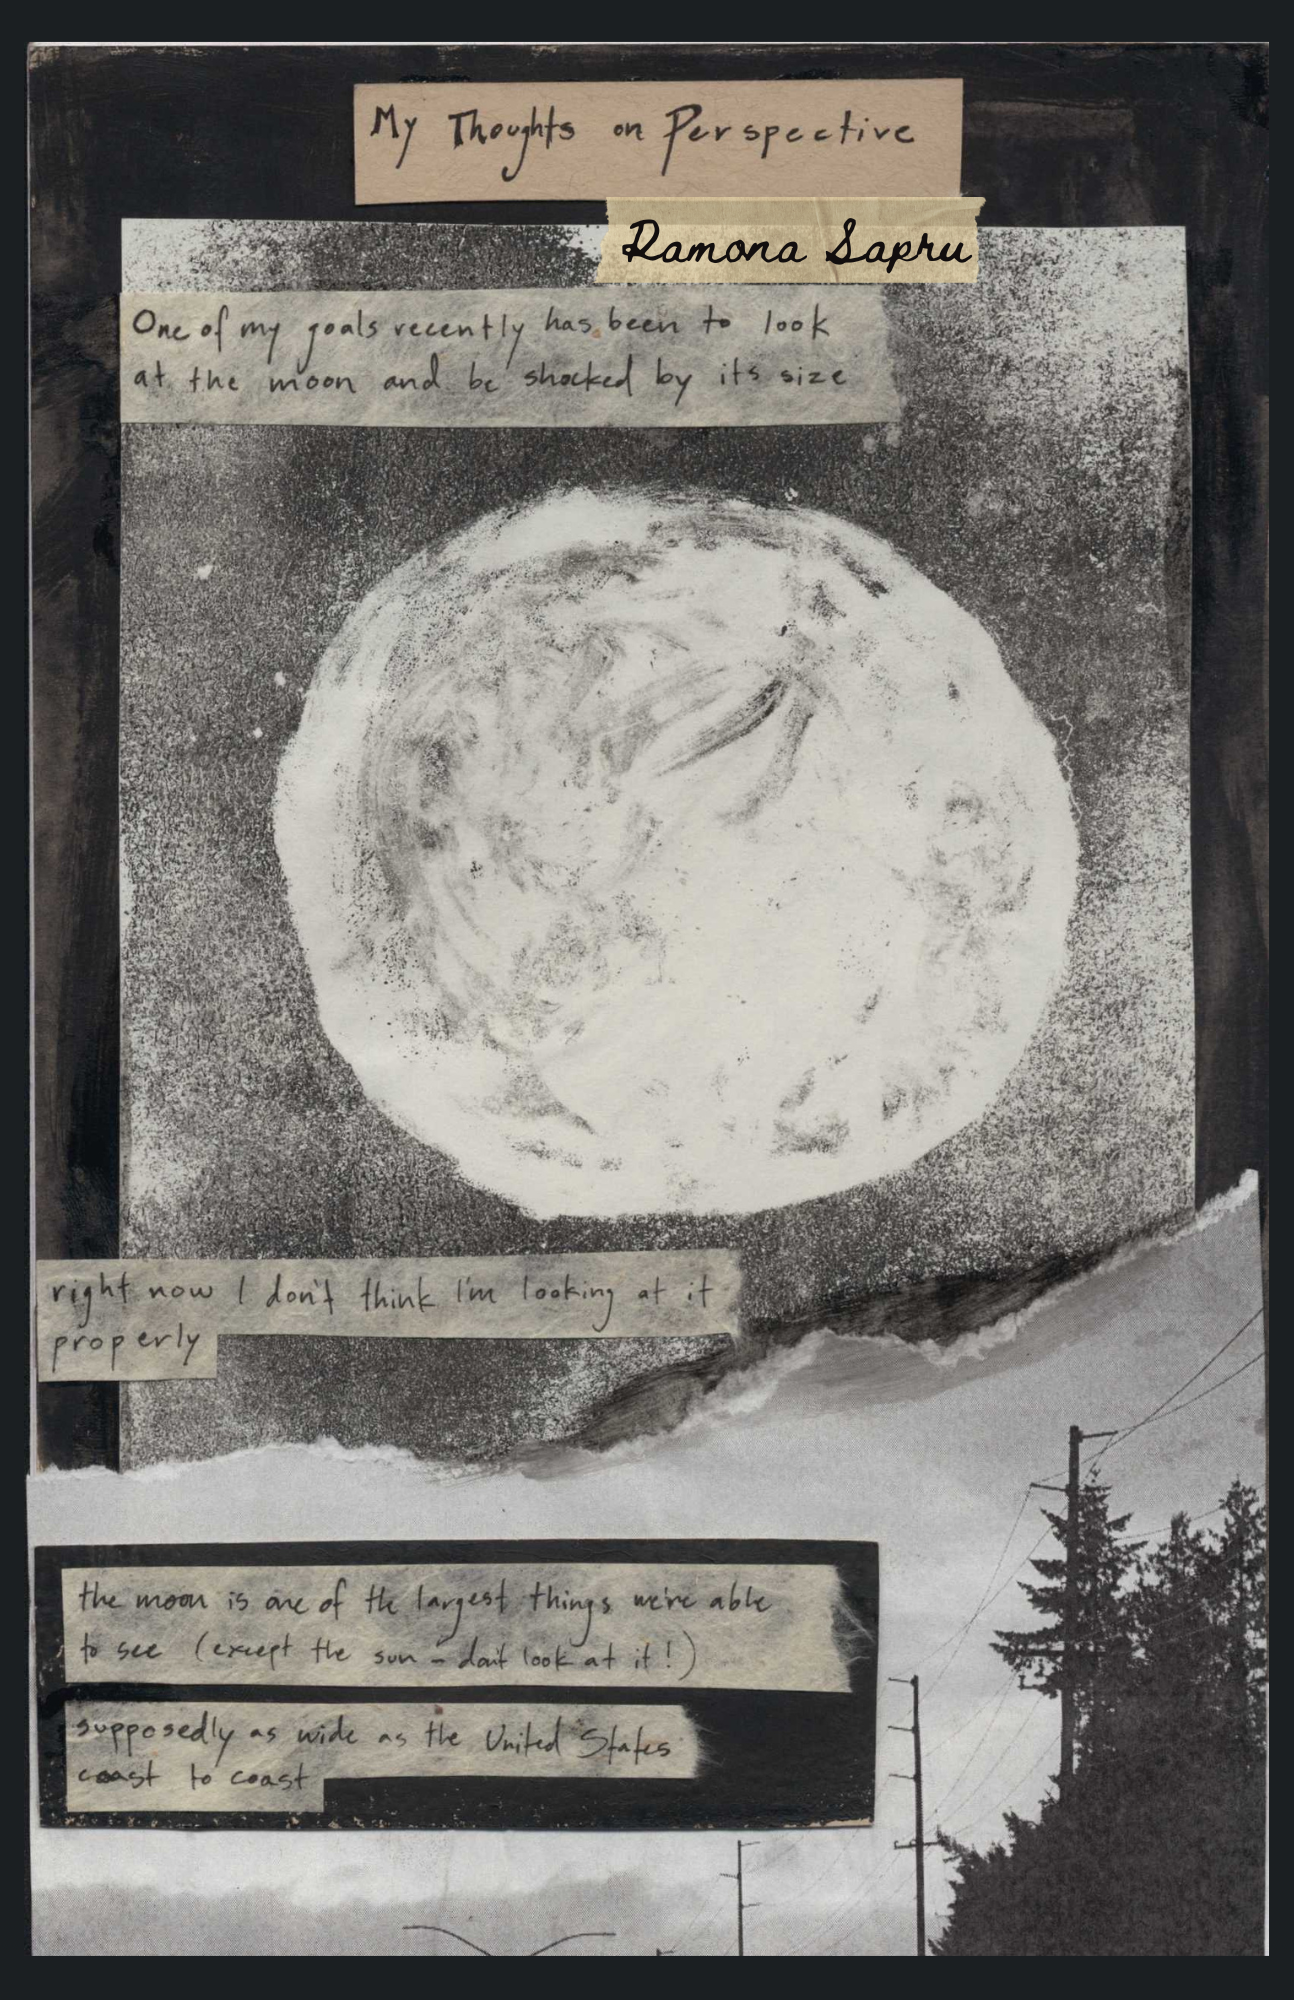 My Thoughts on Perspective
Ramona Sapru
One of my goals recently has been to look
at the moon and be shocked by its size
right now I don't think I'm looking at it
properly
the moon is one of the largest things we're able
to see (except the sun - don't look at it!)
supposedly as wide as the United States
coast to coast